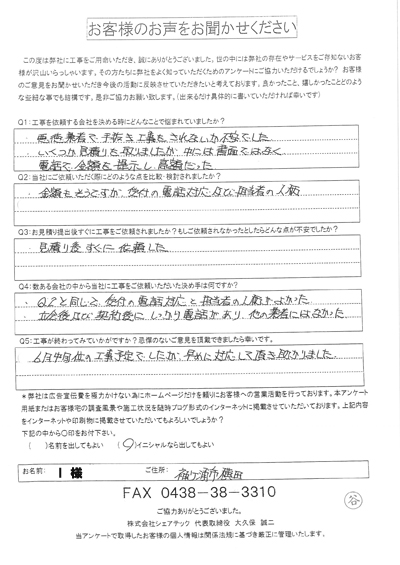 お客様のお声をお聞かせください
この度は弊社に工事をご用命いただき、誠にありがとうございました。世の中には弊社の存在やサービスをご存知ないお客様が沢山いらっしゃいます。その方たちに弊社をよく知っていただくためのアンケートにご協力いただけるでしょうか? お客様のご意見をお聞かせいただき今後の活動に反映させていただきたいと考えております。良かったこと、嬉しかったことどのような些細な事でも結構です。是非ご協力お願い致します。(出来るだけ具体的に書いていただければ幸いです)
Q1:工事を依頼する会社を決める時にどんなことで悩まれていましたか?
・悪徳業者で手抜き工事をされないか不安でした
・いくつか見積りを取りましたが、中には書面ではなく
電話で金額を提示し高額だった
Q2:当社にご依頼いただく際にどのような点を比較・検討されましたか?
・金額もそうですが、受付の電話対応及び担当者の人柄
Q3:お見積り提出後すぐに工事をご依頼されましたか?もしご依頼されなかったとしたらどんな点が不安でしたか?
・見積り後すぐに依頼した
Q4:数ある会社の中から当社に工事をご依頼いただいた決め手は何ですか?
・Q2と同じで受付の電話対応と担当者の人柄がよかった
・立会後及び契約後にしっかり電話があり、他の業者にはなかった
Q5:工事が終わってみていかがですか?忌憚のないご意見を頂戴できましたら幸いです。
・6月中旬位の工事予定でしたが、早めに対応して頂き助かりました
*弊社は広告宣伝費を極力かけない為にホームページだけを頼りにお客様への営業活動を行っております。本アンケート
用紙またはお客様宅の調査風景や施工状況を随時ブログ形式のインターネットに掲載させていただいております。上記内容
をインターネットや印刷物に掲載させていただいてもよろしいでしょうか?
下記の中から〇印をお付下さい。
( )名前を出してもよい ( )イニシャルなら出してもよい
お名前: I 様 ご住所: 袖ケ浦市蔵波
FAX 0438-38-3310
谷
ご協力ありがとうございました。
株式会社シェアテック 代表取締役 大久保 誠二
当アンケートで取得したお客様の個人情報は関係法規に基づき厳正に管理いたします。